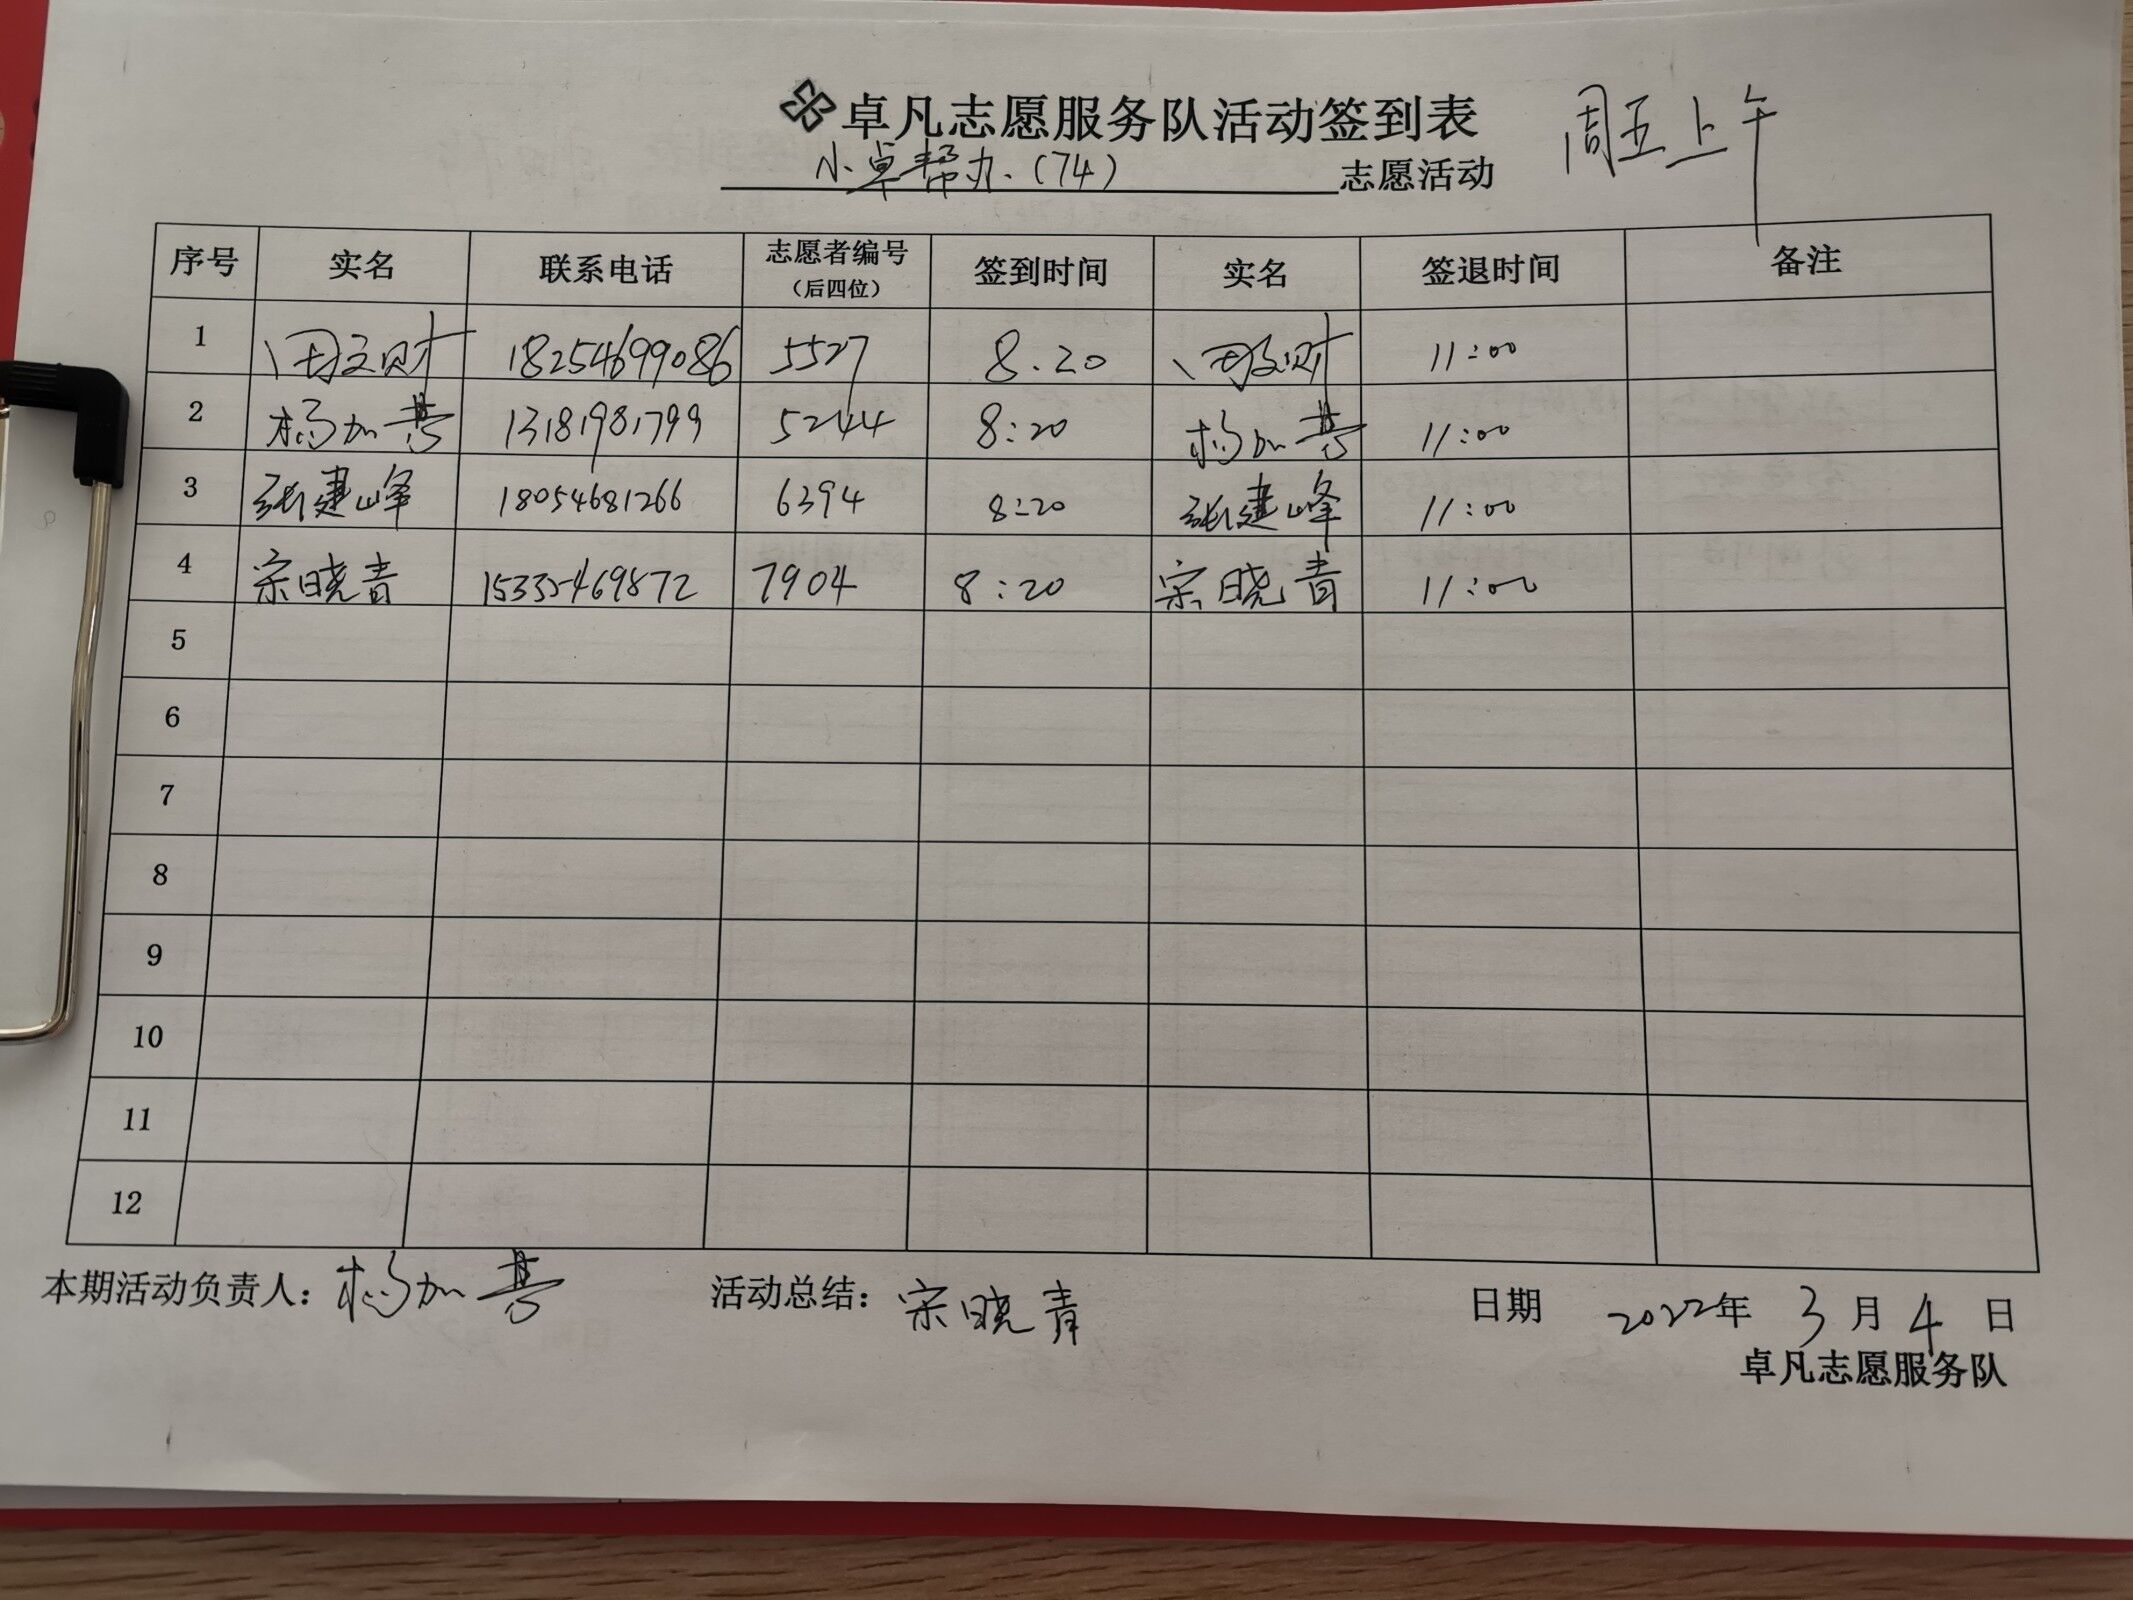 卓凡志愿服务队活动签到表
周五上午
小卓帮办.(74) 志愿活动
序号 实名 联系电话 志愿者编号（后四位） 签到时间 实名 签退时间 备注
1 18254699086 5527 8.20 11:00
2 杨加 13181981799 5244 8:20 杨加 11:00
3 张建峰 18054681266 6394 8:20 张建峰 11:00
4 宋晓青 7904 8:20 宋晓青 11:00
5
6
7
8
9
10
11
12
本期活动负责人：杨加 活动总结：宋晓青 日期 2022年 3月 4日
卓凡志愿服务队